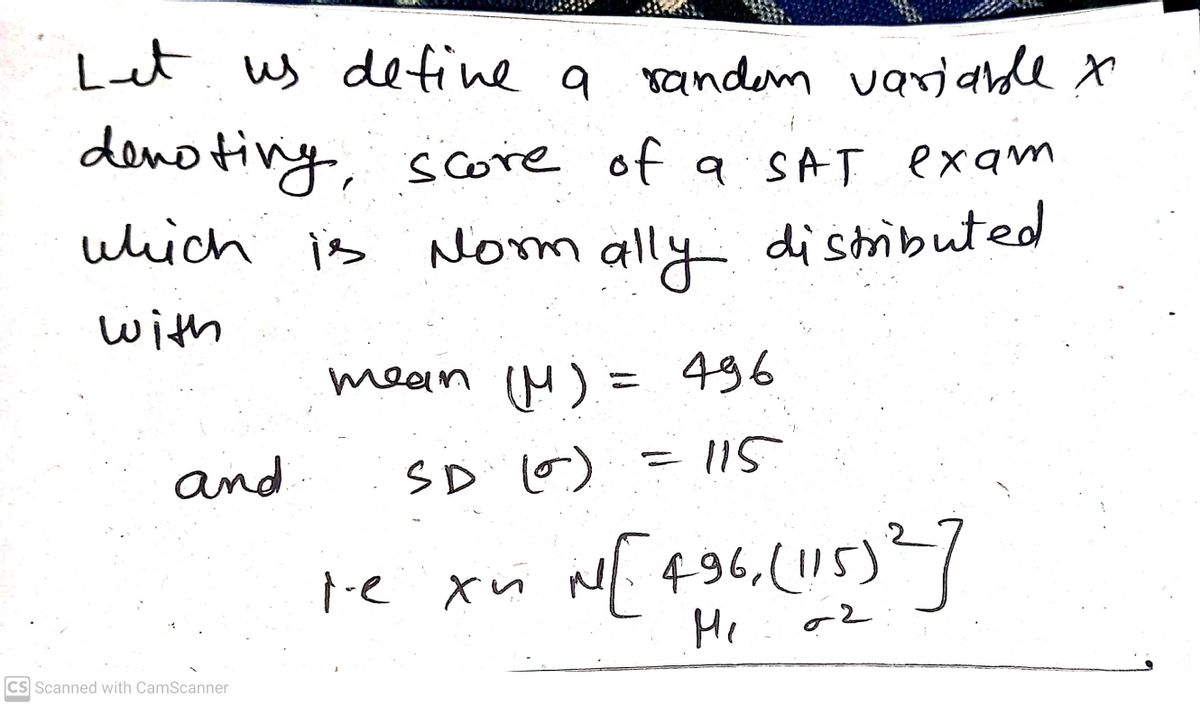 Let us define a random variable x
denoting, score of a SAT exam
which is Normally distributed
with
mean (μ) = 496
and SD (σ) = 115
i.e x ~ N[496, (115)²]
μ, σ²
CS Scanned with CamScanner